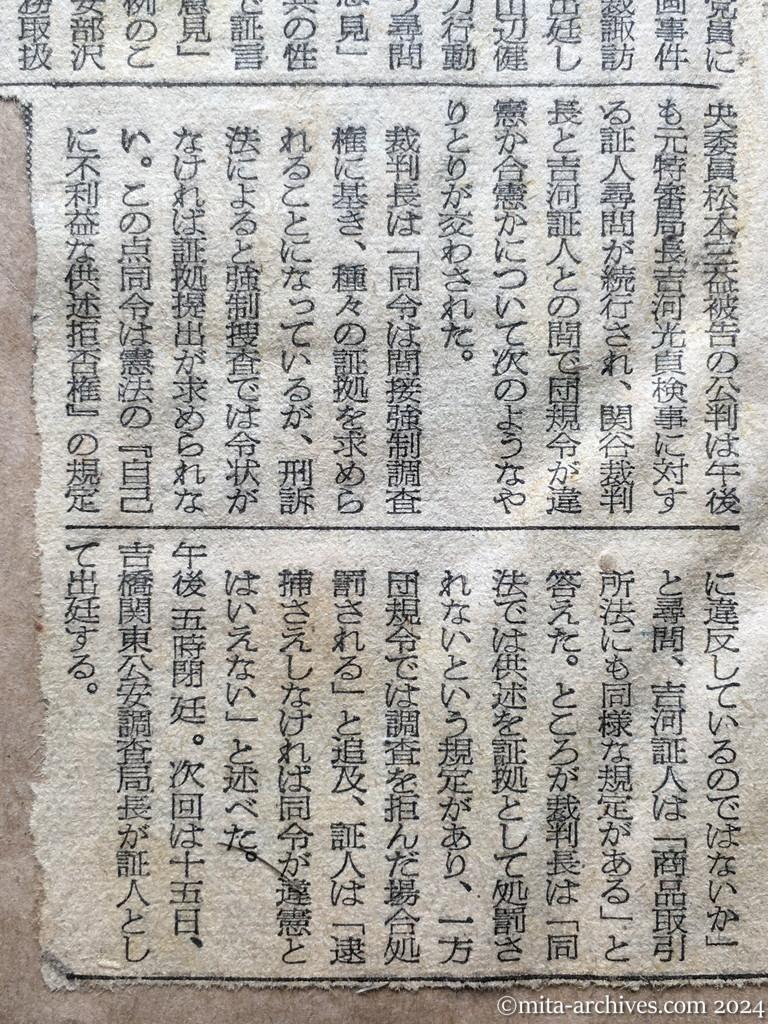 党員に
画事件
裁諏訪
出廷し
山辺健
力行動
う尋問
意見」
共の性
で証言
意見」
例のこ
安部沢
務取扱
央委員松本三益被告の公判は午後
も元特審局長吉河光貞検事に対す
る証人尋問が続行され、関谷裁判
長と吉河証人との間で団規令が違
憲か合憲かについて次のようなや
りとりが交わされた。
裁判長は「同令は間接強制調査
権に基き、種々の証拠を求めら
れることになっているが、刑訴
法によると強制捜査では令状が
なければ証拠提出が求められな
い。この点同令は憲法の『自己
に不利益な供述拒否権』の規定
に違反しているのではないか」
と尋問、吉河証人は「商品取引
所法にも同様な規定がある」と
答えた。ところが裁判長は「同
法では供述を証拠として処罰さ
れないという規定があり、一方
団規令では調査を拒んだ場合処
罰される」と追及、証人は「逮
捕さえしなければ同令が違憲と
はいえない」と述べた。
午後五時閉廷。次回は十五日、
吉橋関東公安調査局長が証人とし
て出廷する。
©mita-archives.com 2024